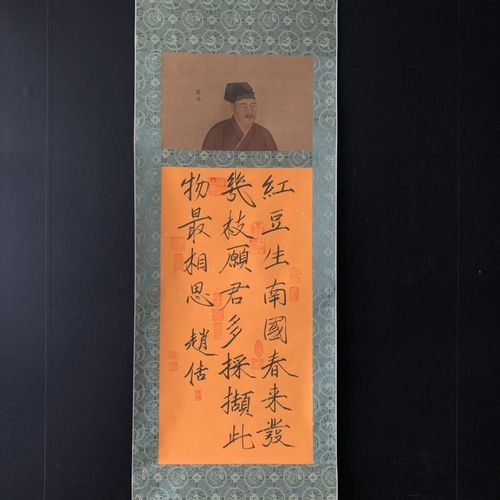 紅豆生南國春来發
幾枝願君多採擷此
物最相思
趙佶